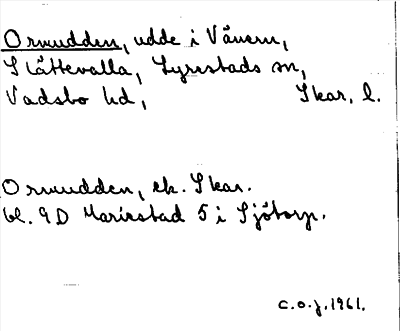 Ormudden, udde i Vänern,
Slättevalla, Lyrestads sn,
Vadsbo hd, Skar. l.
Ormudden, ek. Skar.
bl. 9D Mariestad 5 i Sjötorp.
C.O.J. 1961.